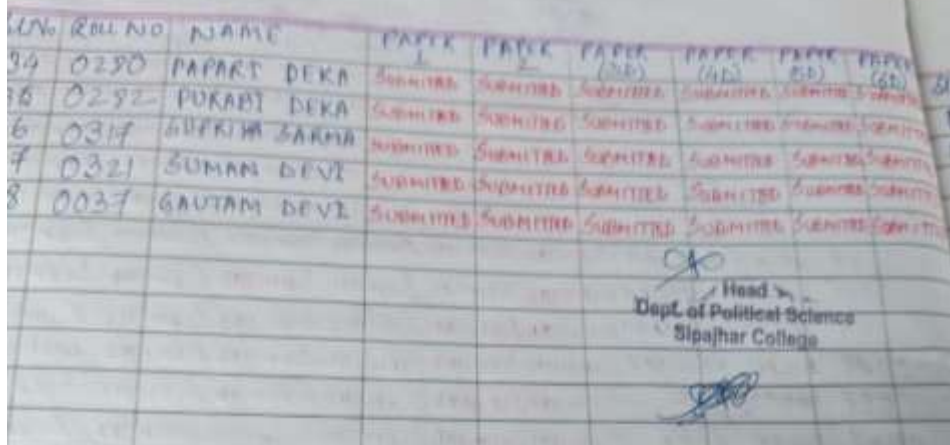 ROLL NO NAME PAPER 1 PAPER 2 PAPER (3D) PAPER (4D) PAPER (5D) PAPER (6D)
34 0280 PAPARI DEKA SUBMITTED SUBMITTED SUBMITTED SUBMITTED SUBMITTED SUBMITTED
0282 PURABI DEKA SUBMITTED SUBMITTED SUBMITTED SUBMITTED SUBMITTED SUBMITTED
6 0317 SUPRIYA SARMA SUBMITTED SUBMITTED SUBMITTED SUBMITTED SUBMITTED SUBMITTED
7 0321 SUMAN DEVI SUBMITTED SUBMITTED SUBMITTED SUBMITTED SUBMITTED SUBMITTED
8 0037 GAUTAM DEVI SUBMITTED SUBMITTED SUBMITTED SUBMITTED SUBMITTED SUBMITTED
Head
Dept. of Political Science
Sipajhar College